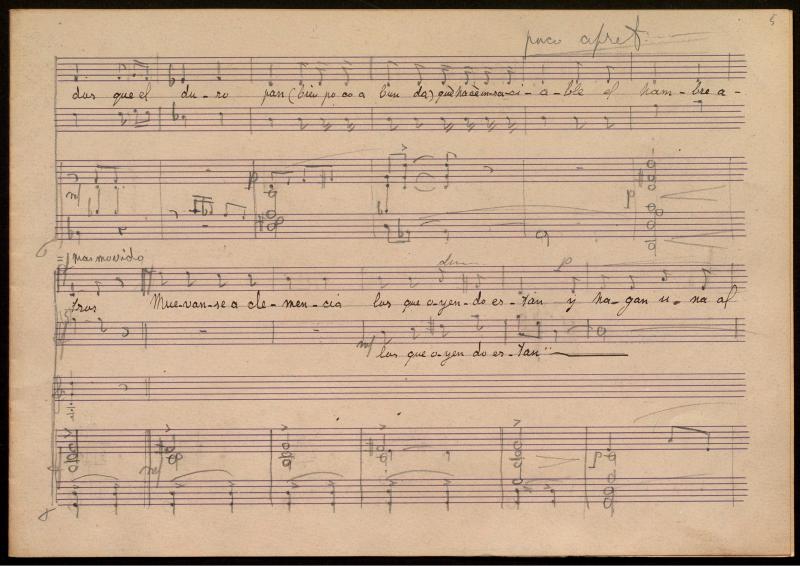 5
poco apret.
dos que el du-ro pan (bien po co a bun da) que hace in-sa-ci-a-ble el ham-bre a-
p
p
mas movido
dim
p
tros Mue-van-se a cle-men-cia los que o-yen-do es-tan y ha-gan u-na al
mf los que o-yen do es-tan
mf
p